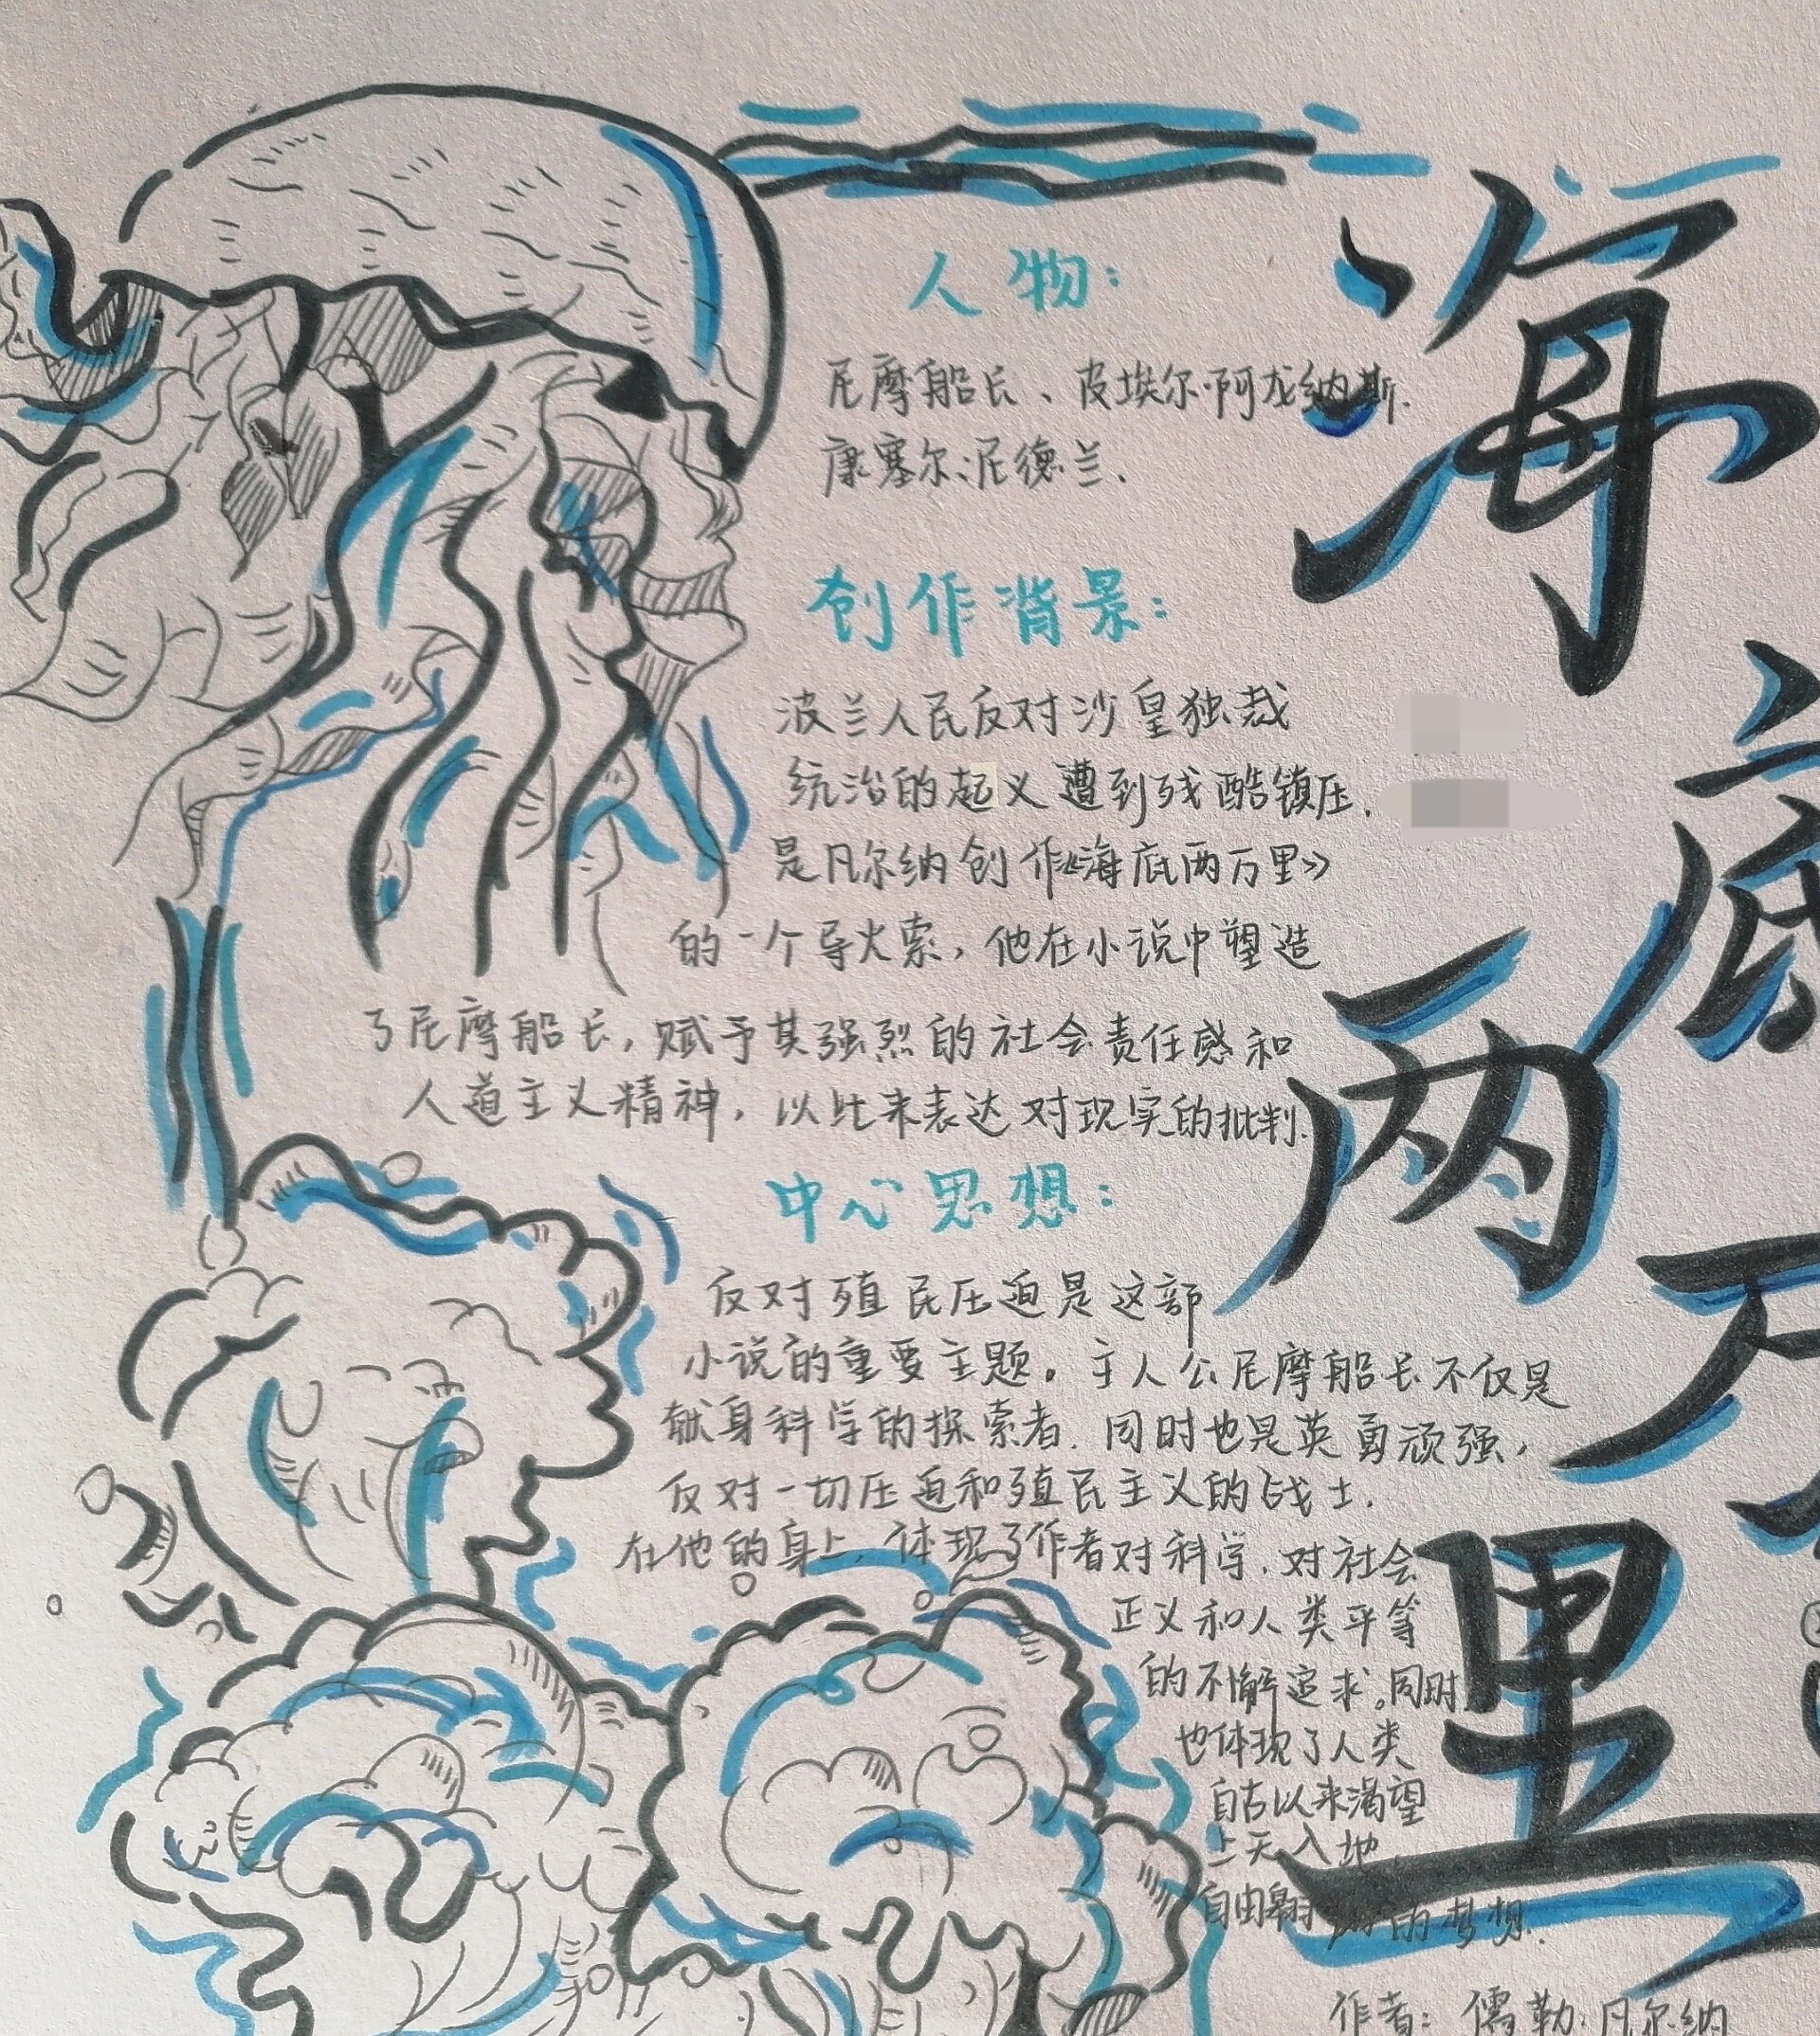 海底两万里
人物：
尼摩船长、皮埃尔·阿龙纳斯.
康塞尔、尼德兰.
创作背景：
波兰人民反对沙皇独裁
统治的起义遭到残酷镇压.
是凡尔纳创作《海底两万里》
的一个导火索，他在小说中塑造
了尼摩船长，赋予其强烈的社会责任感和
人道主义精神，以此来表达对现实的批判.
中心思想：
反对殖民压迫是这部
小说的重要主题。主人公尼摩船长不仅是
献身科学的探索者.同时也是英勇顽强，
反对一切压迫和殖民主义的战士.
在他的身上,体现了作者对科学.对社会
正义和人类平等
的不懈追求。同时
也体现了人类
自古以来渴望
上天入地,
自由翱翔的梦想.
作者：儒勒·凡尔纳